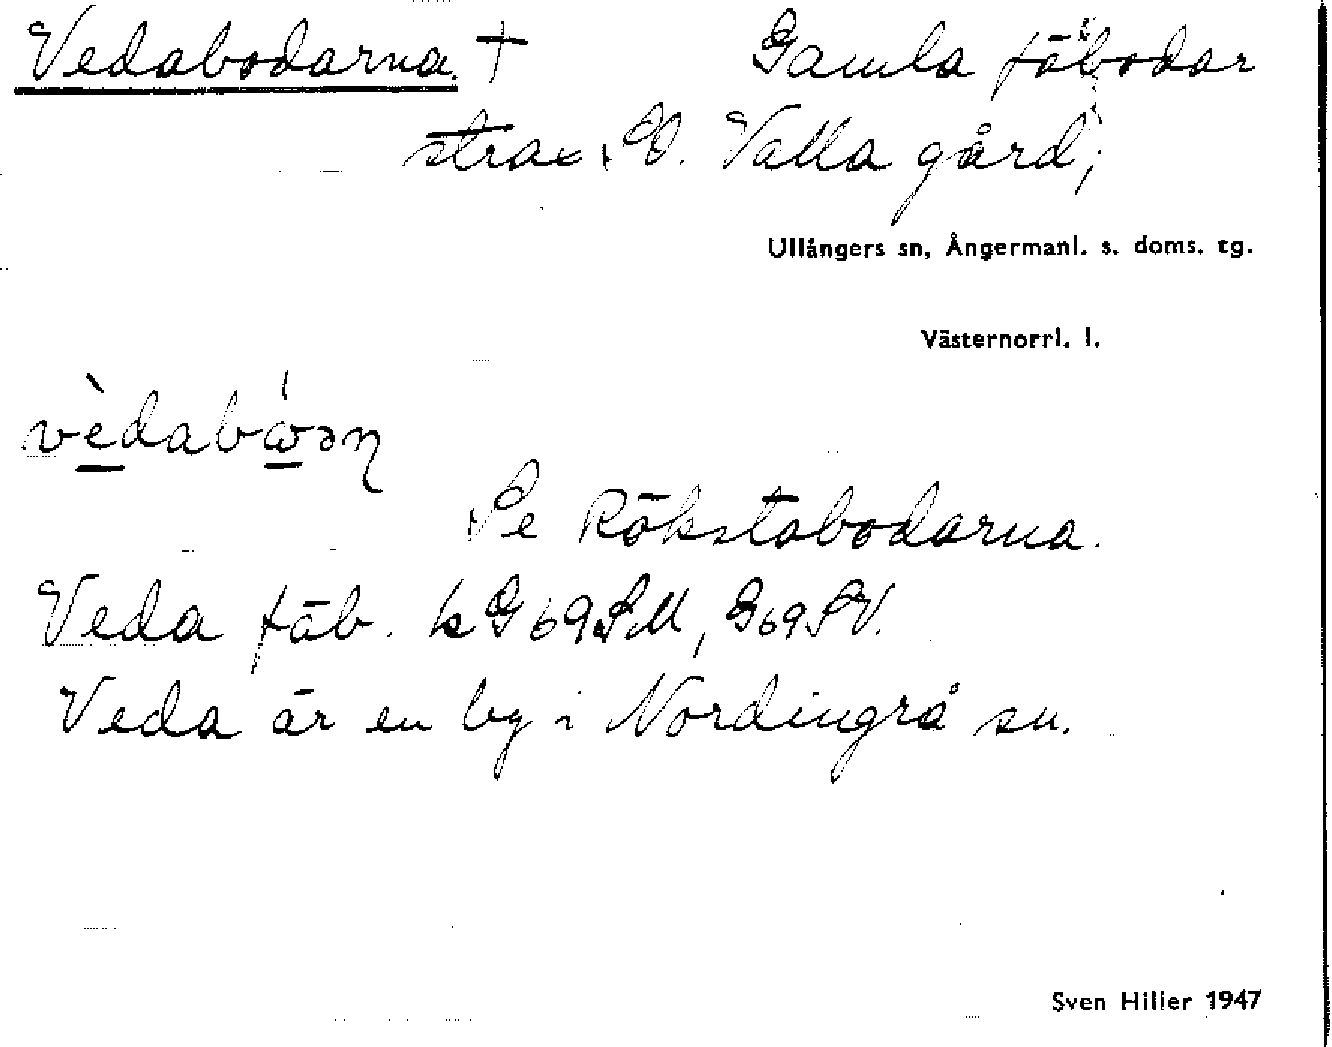 Vedabodarna. † Gamla fäbodar
strax SO. Valla gård;
Ullångers sn, Ångermanl. s. doms. tg.
Västernorrl. l.
Se Rökstabodarna.
Veda fäb. k G 69 SM, G 69 SV.
Veda är en by i Nordingrå sn.
Sven Hilier 1947